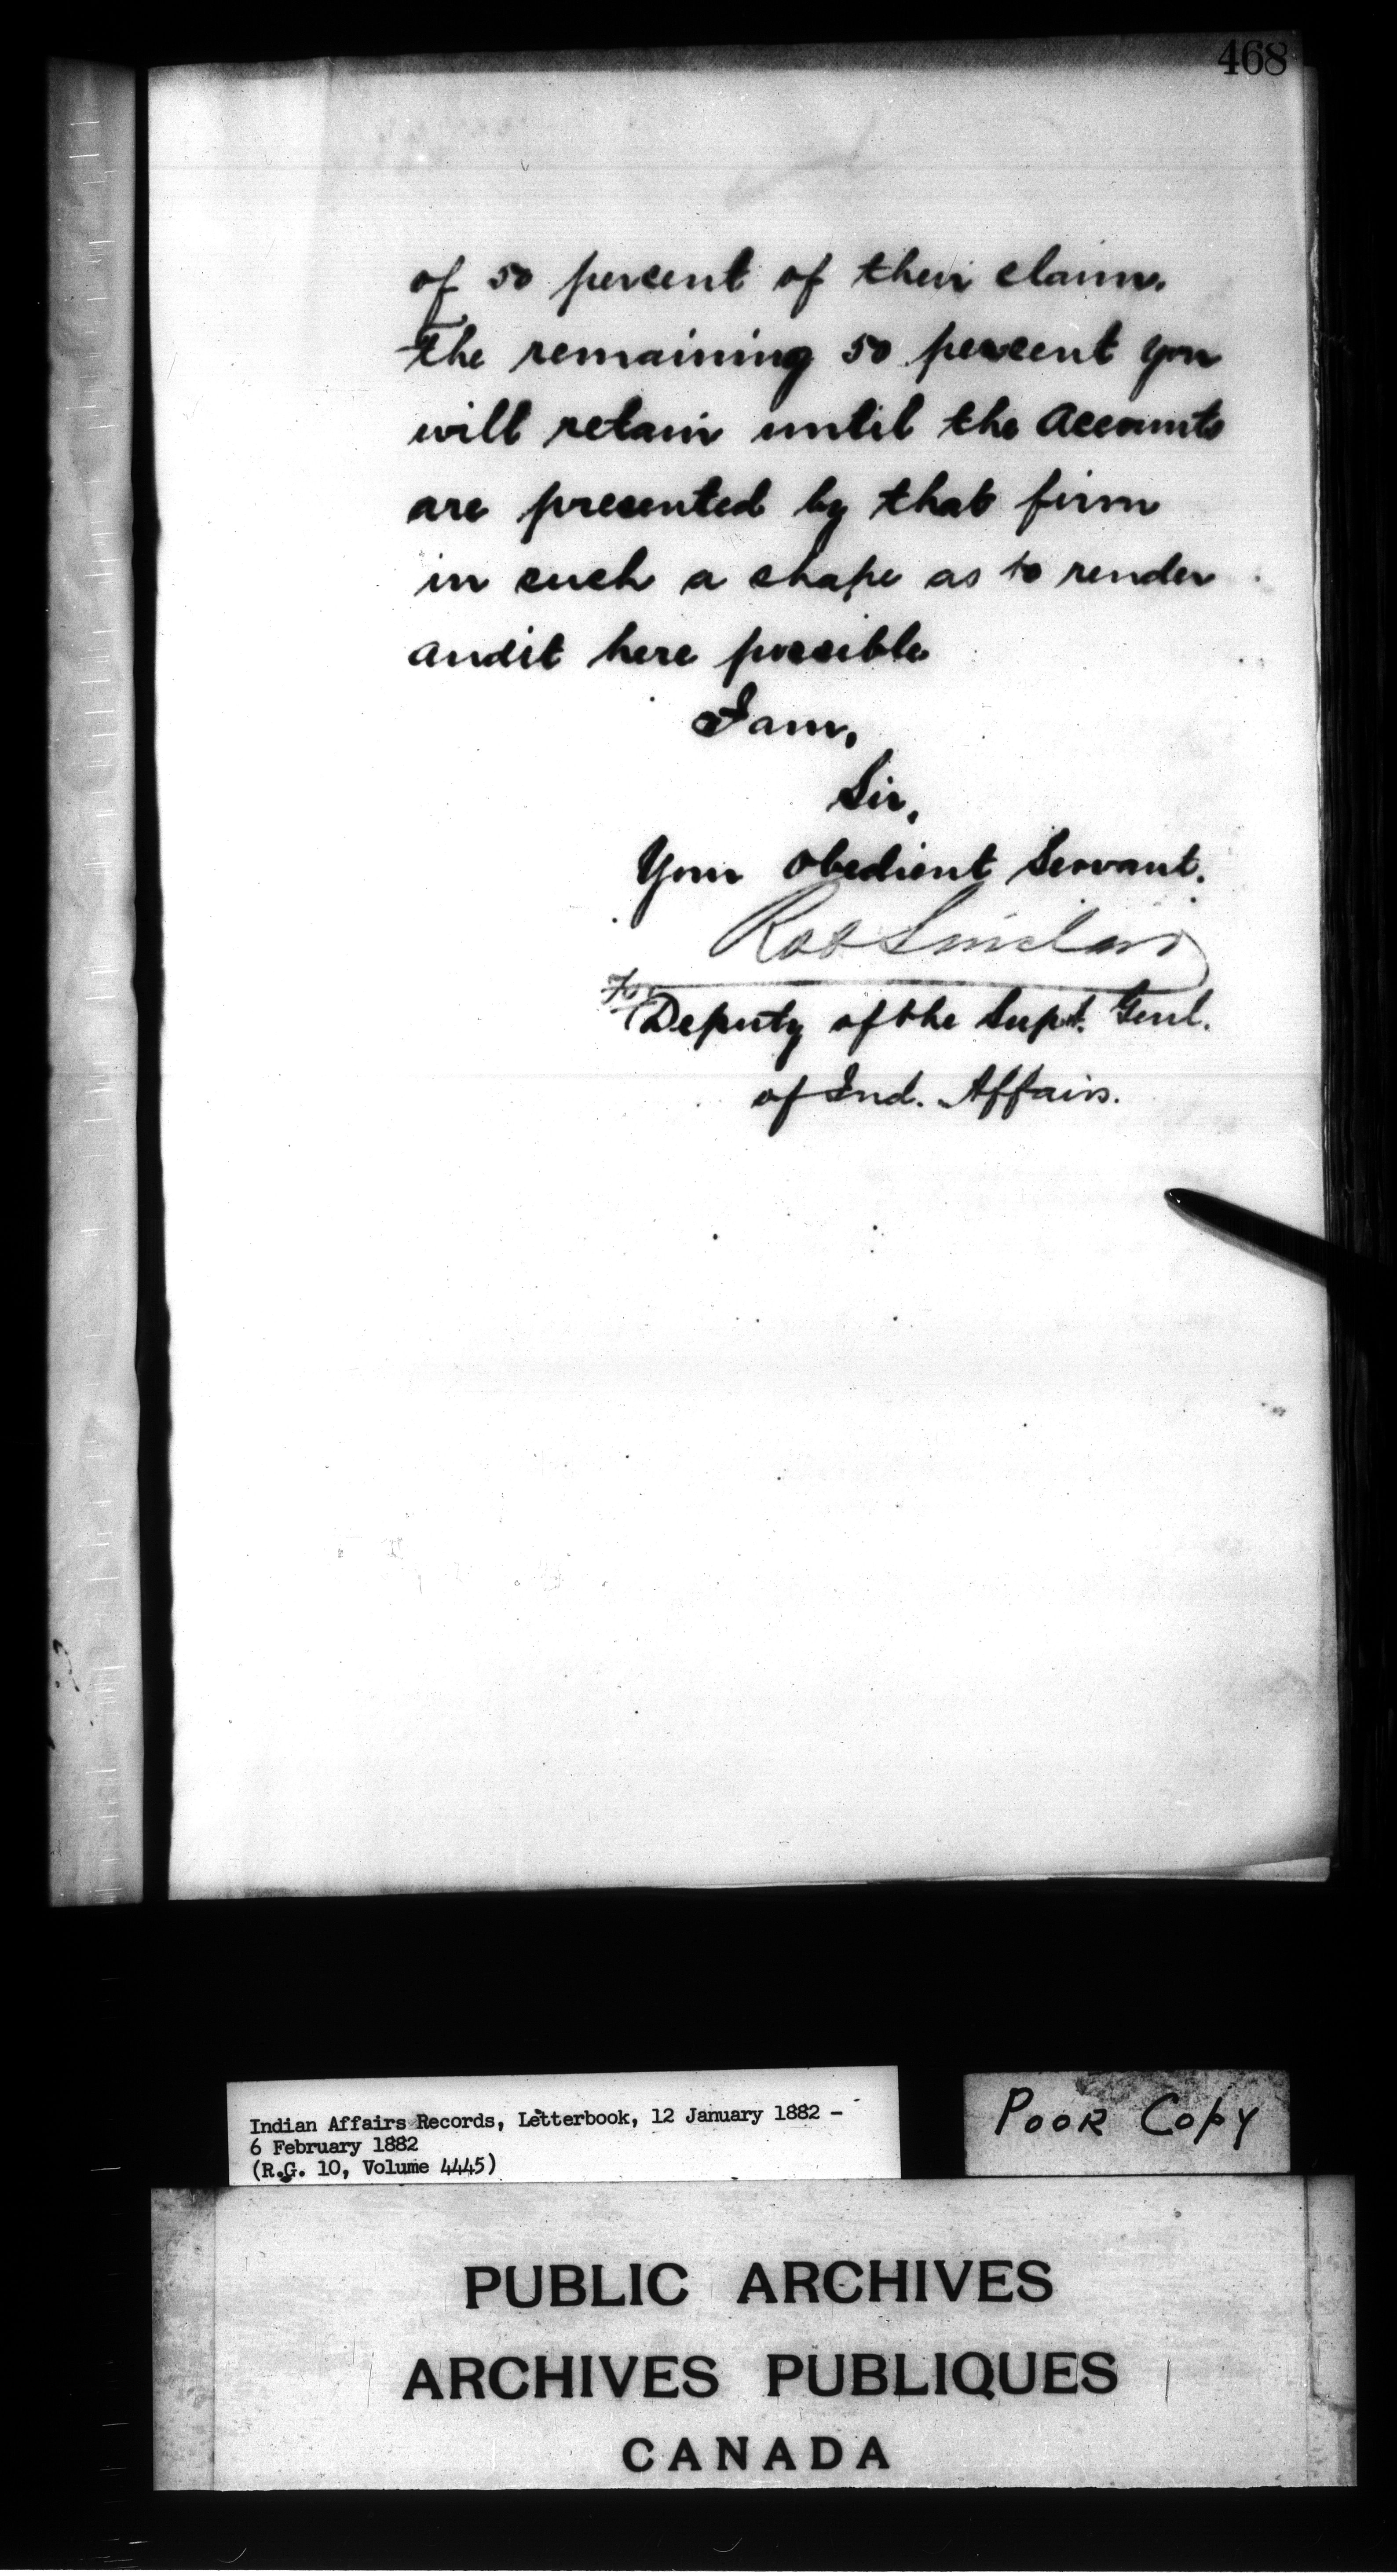 468
of 50 percent of their claim.
The remaining 50 percent you
will retain until the Accounts
are presented by that firm
in such a shape as to render
audit here possible
I am,
Sir,
Your Obedient Servant.
Rob Sinclair
For
Deputy of the Supt. Genl.
of Ind. Affairs.
Indian Affairs Records, Letterbook, 12 January 1882 -
6 February 1882
(R.G. 10, Volume 4445)
POOR COPY
PUBLIC ARCHIVES
ARCHIVES PUBLIQUES
CANADA